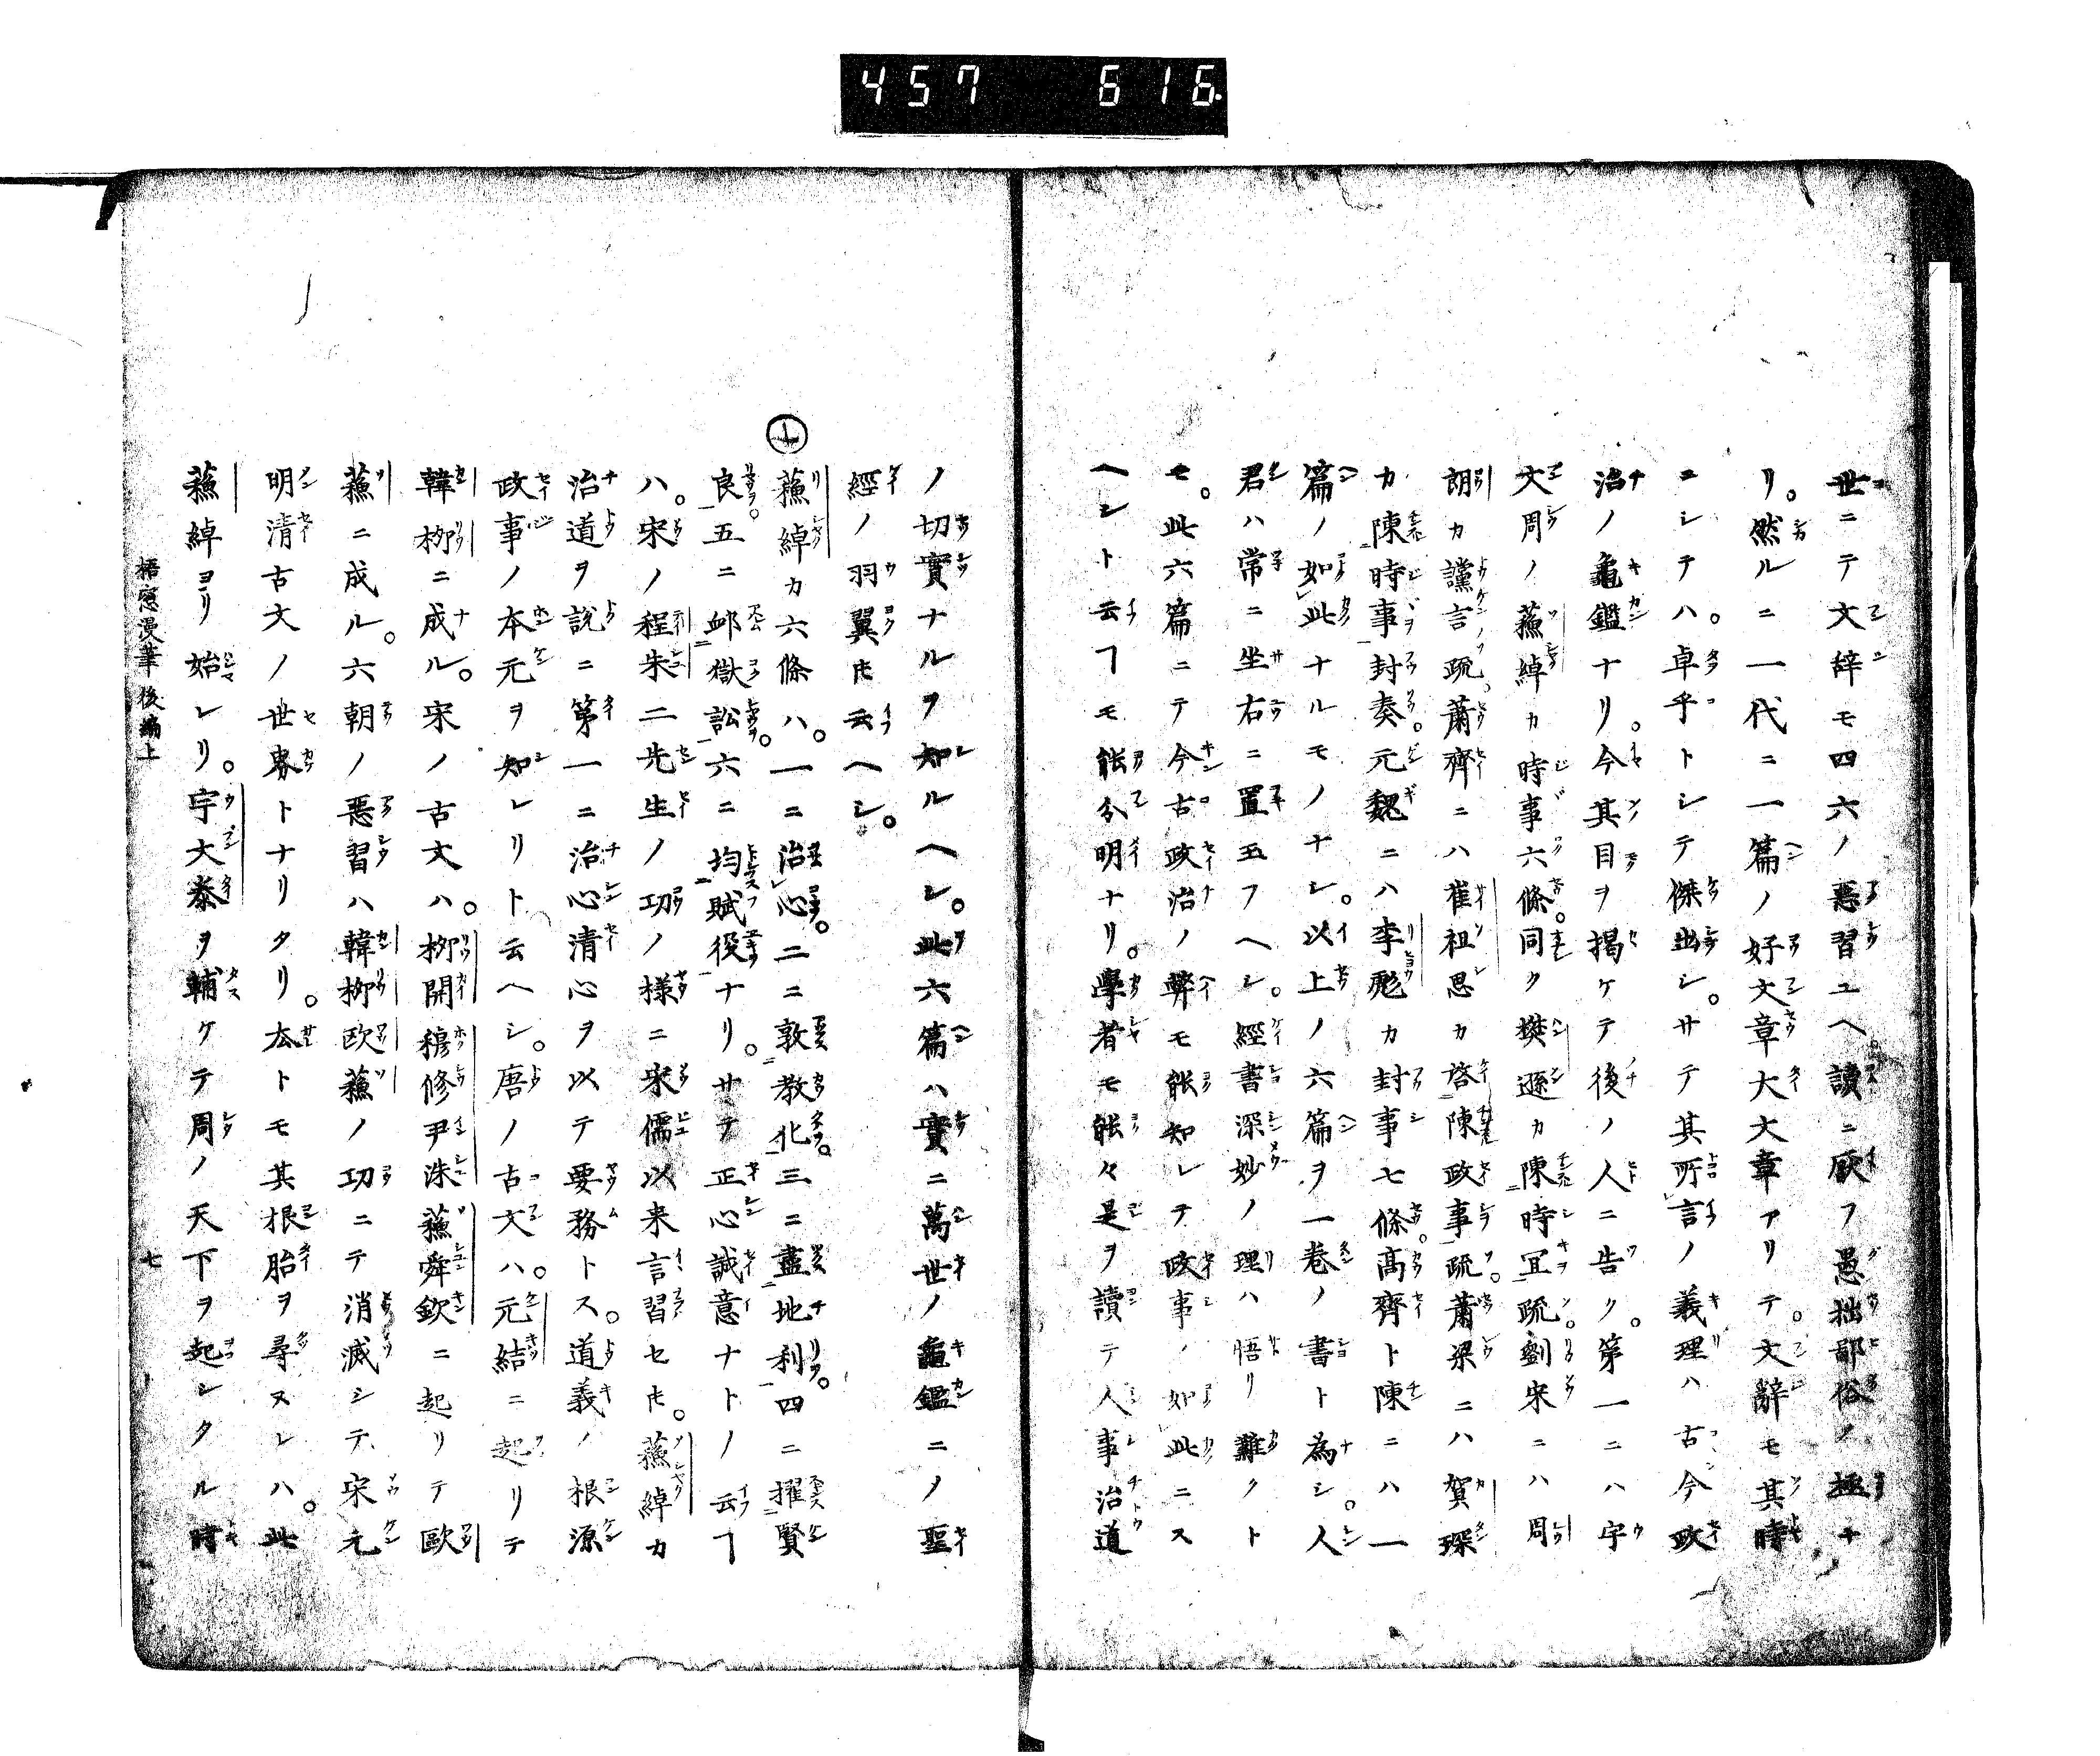 457 616.
世ニテ文辞モ四六ノ惡習ユヘ。讀ニ厭フ愚拙鄙俗ノ極ナ
リ。然ルニ一代ニ一篇ノ好文章大文章アリテ。文辭モ其時
ニシテハ。卓乎トシテ傑出シ。サテ其所言ノ義理ハ古今政
治ノ龜鑑ナリ。今其目ヲ揭ケテ後ノ人ニ告ク。第一ニハ宇
文周ノ蘓綽カ時事六條。同ク樊遜カ陳時冝疏。劉宋ニハ周
朗カ讜言疏。蕭齊ニハ崔祖思カ啓陳政事疏。蕭梁ニハ賀琛
カ陳時事封奏。元魏ニハ李彪カ封事七條。髙齊ト陳ニハ一
篇ノ如此ナルモノナシ。以上ノ六篇ヲ一巻ノ書ト為シ。人
君ハ常ニ坐右ニ置玉フヘシ。經書深妙ノ理ハ悟リ難クト
モ。此六篇ニテ今古政治ノ弊モ能知レテ政事ノ如此ニス
ヘシト云ヿモ能分明ナリ。學者モ能々是ヲ讀テ人事治道
ノ切實ナルヲ知ルヘシ。此六篇ハ實ニ萬世ノ龜鑑ニノ聖
經ノ羽翼ㇳモ云ヘシ。
蘓綽カ六條ハ。一ニ治心。二ニ敦教化。三ニ盡地利。四ニ擢賢
良。五ニ䘏獄訟。六ニ均賦役ナリ。サテ正心誠意ナトノ云ヿ
ハ。宋ノ程朱二先生ノ功ノ様ニ宋儒以来言習セㇳモ。蘓綽カ
治道ヲ說ニ第一ニ治心清心ヲ以テ要務トス。道義ノ根源
政事ノ本元ヲ知レリト云ヘシ。唐ノ古文ハ。元結ニ起リテ
韓柳ニ成ル。宋ノ古文ハ。柳開穆修尹洙蘓舜欽ニ起リテ歐
蘓ニ成ル。六朝ノ惡習ハ韓柳欧蘓ノ功ニテ消滅シテ宋元
明清古文ノ世界トナリタリ。厺トモ其根胎ヲ尋ヌレハ。此
蘓綽ヨリ始レリ。宇文泰ヲ輔ケテ周ノ天下ヲ起シタル時
梧窓漫筆後編上 七